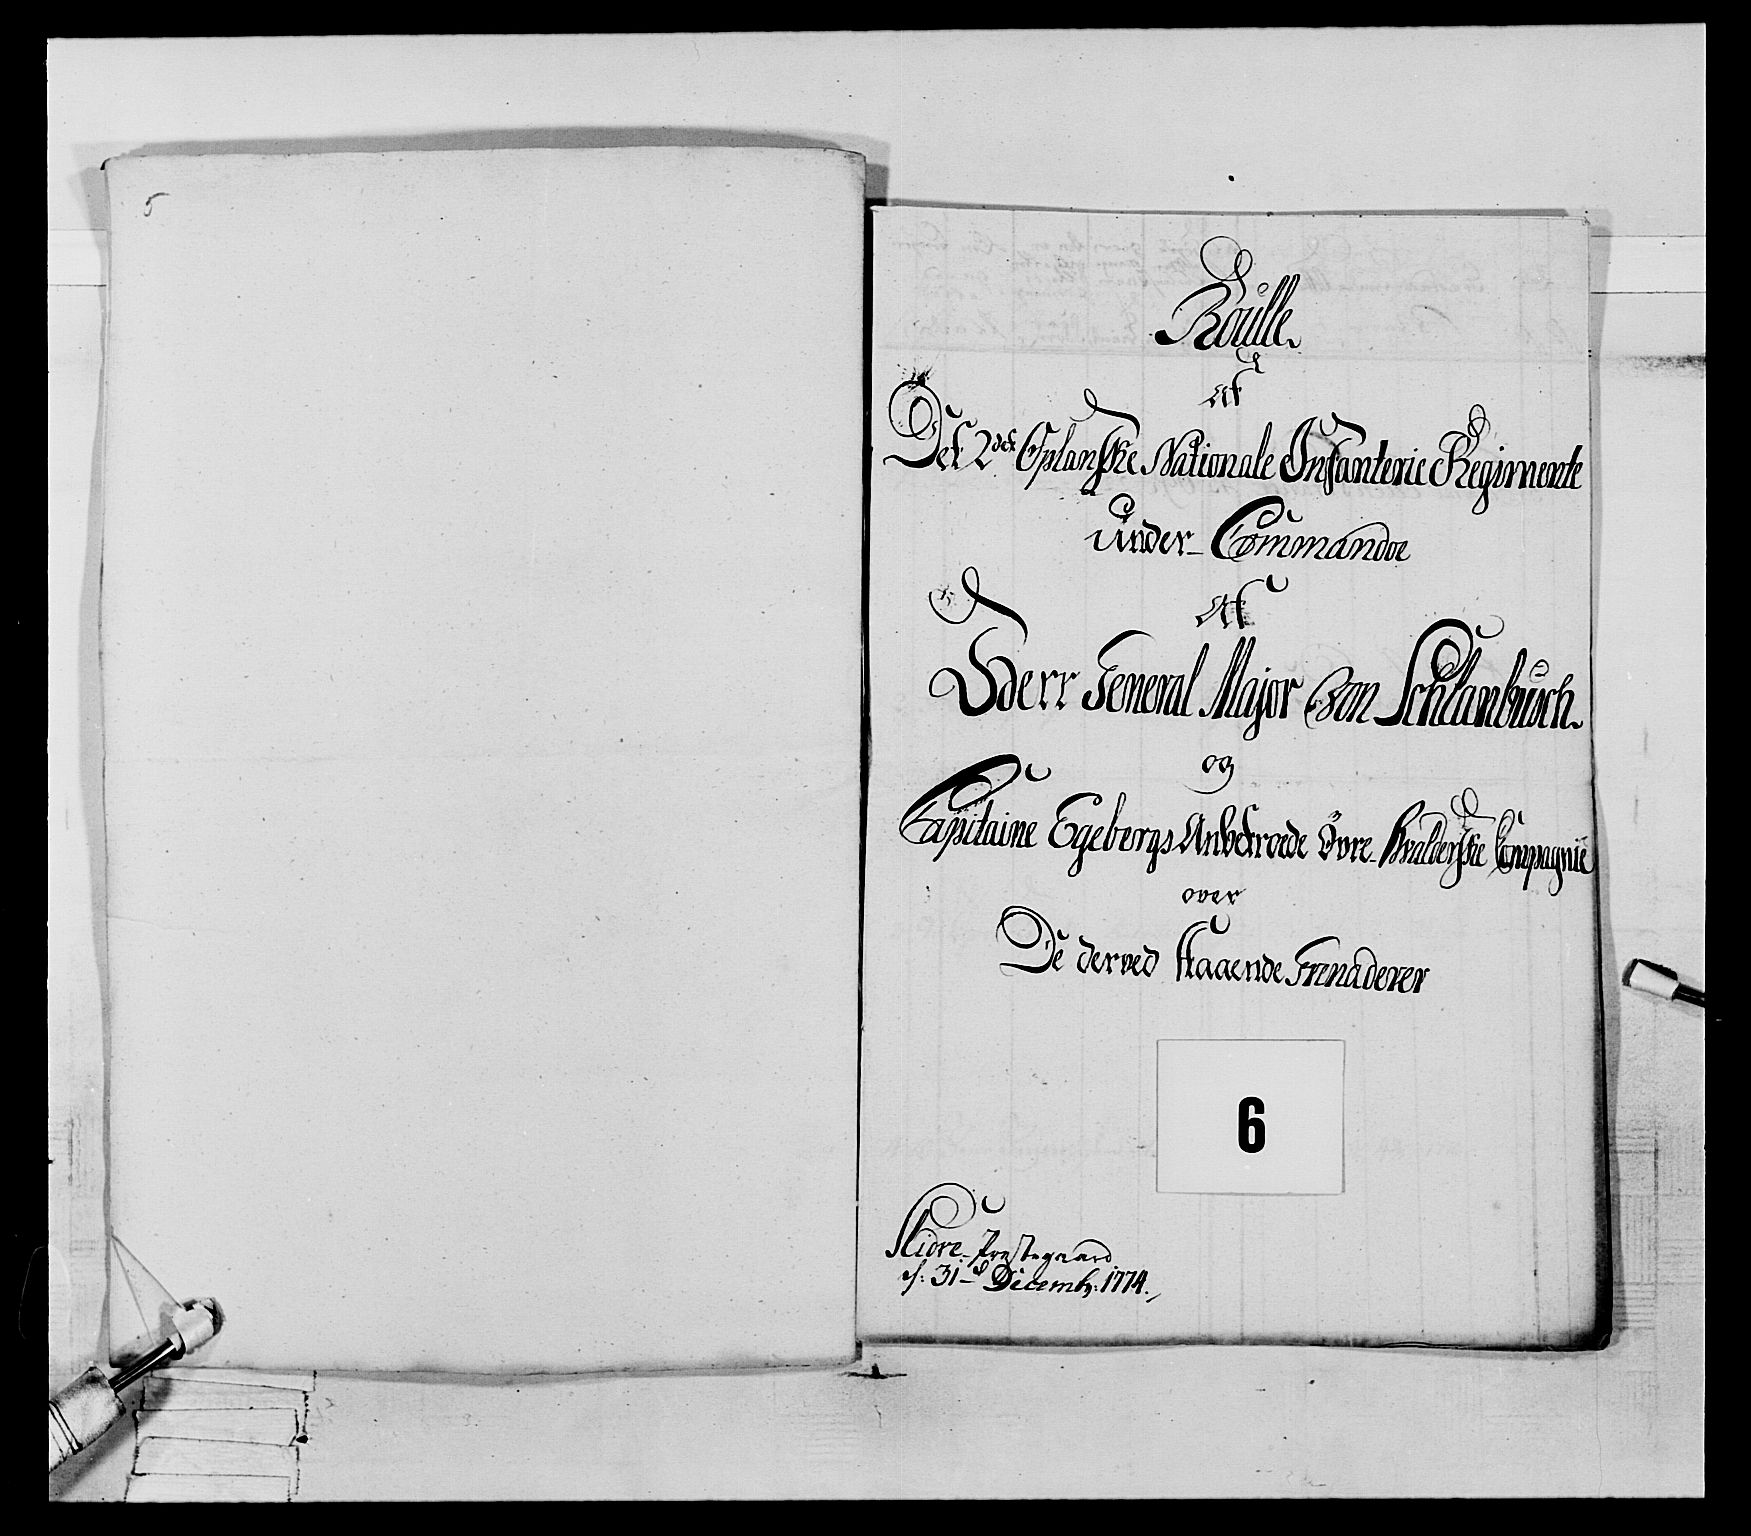 5
Roulle
Af
Det 2det Oplanske Nationale Infanterie Regimente
under Commandoe
Af
Herr General Major von Schilanbusch.
og
Capitaine Egebergs Anbetroede Øvre Hvalderske Compagnie
over
De derved staaende Grenaderer
6
Slidre Præstegaard
d: 31-d Decembr: 1774.